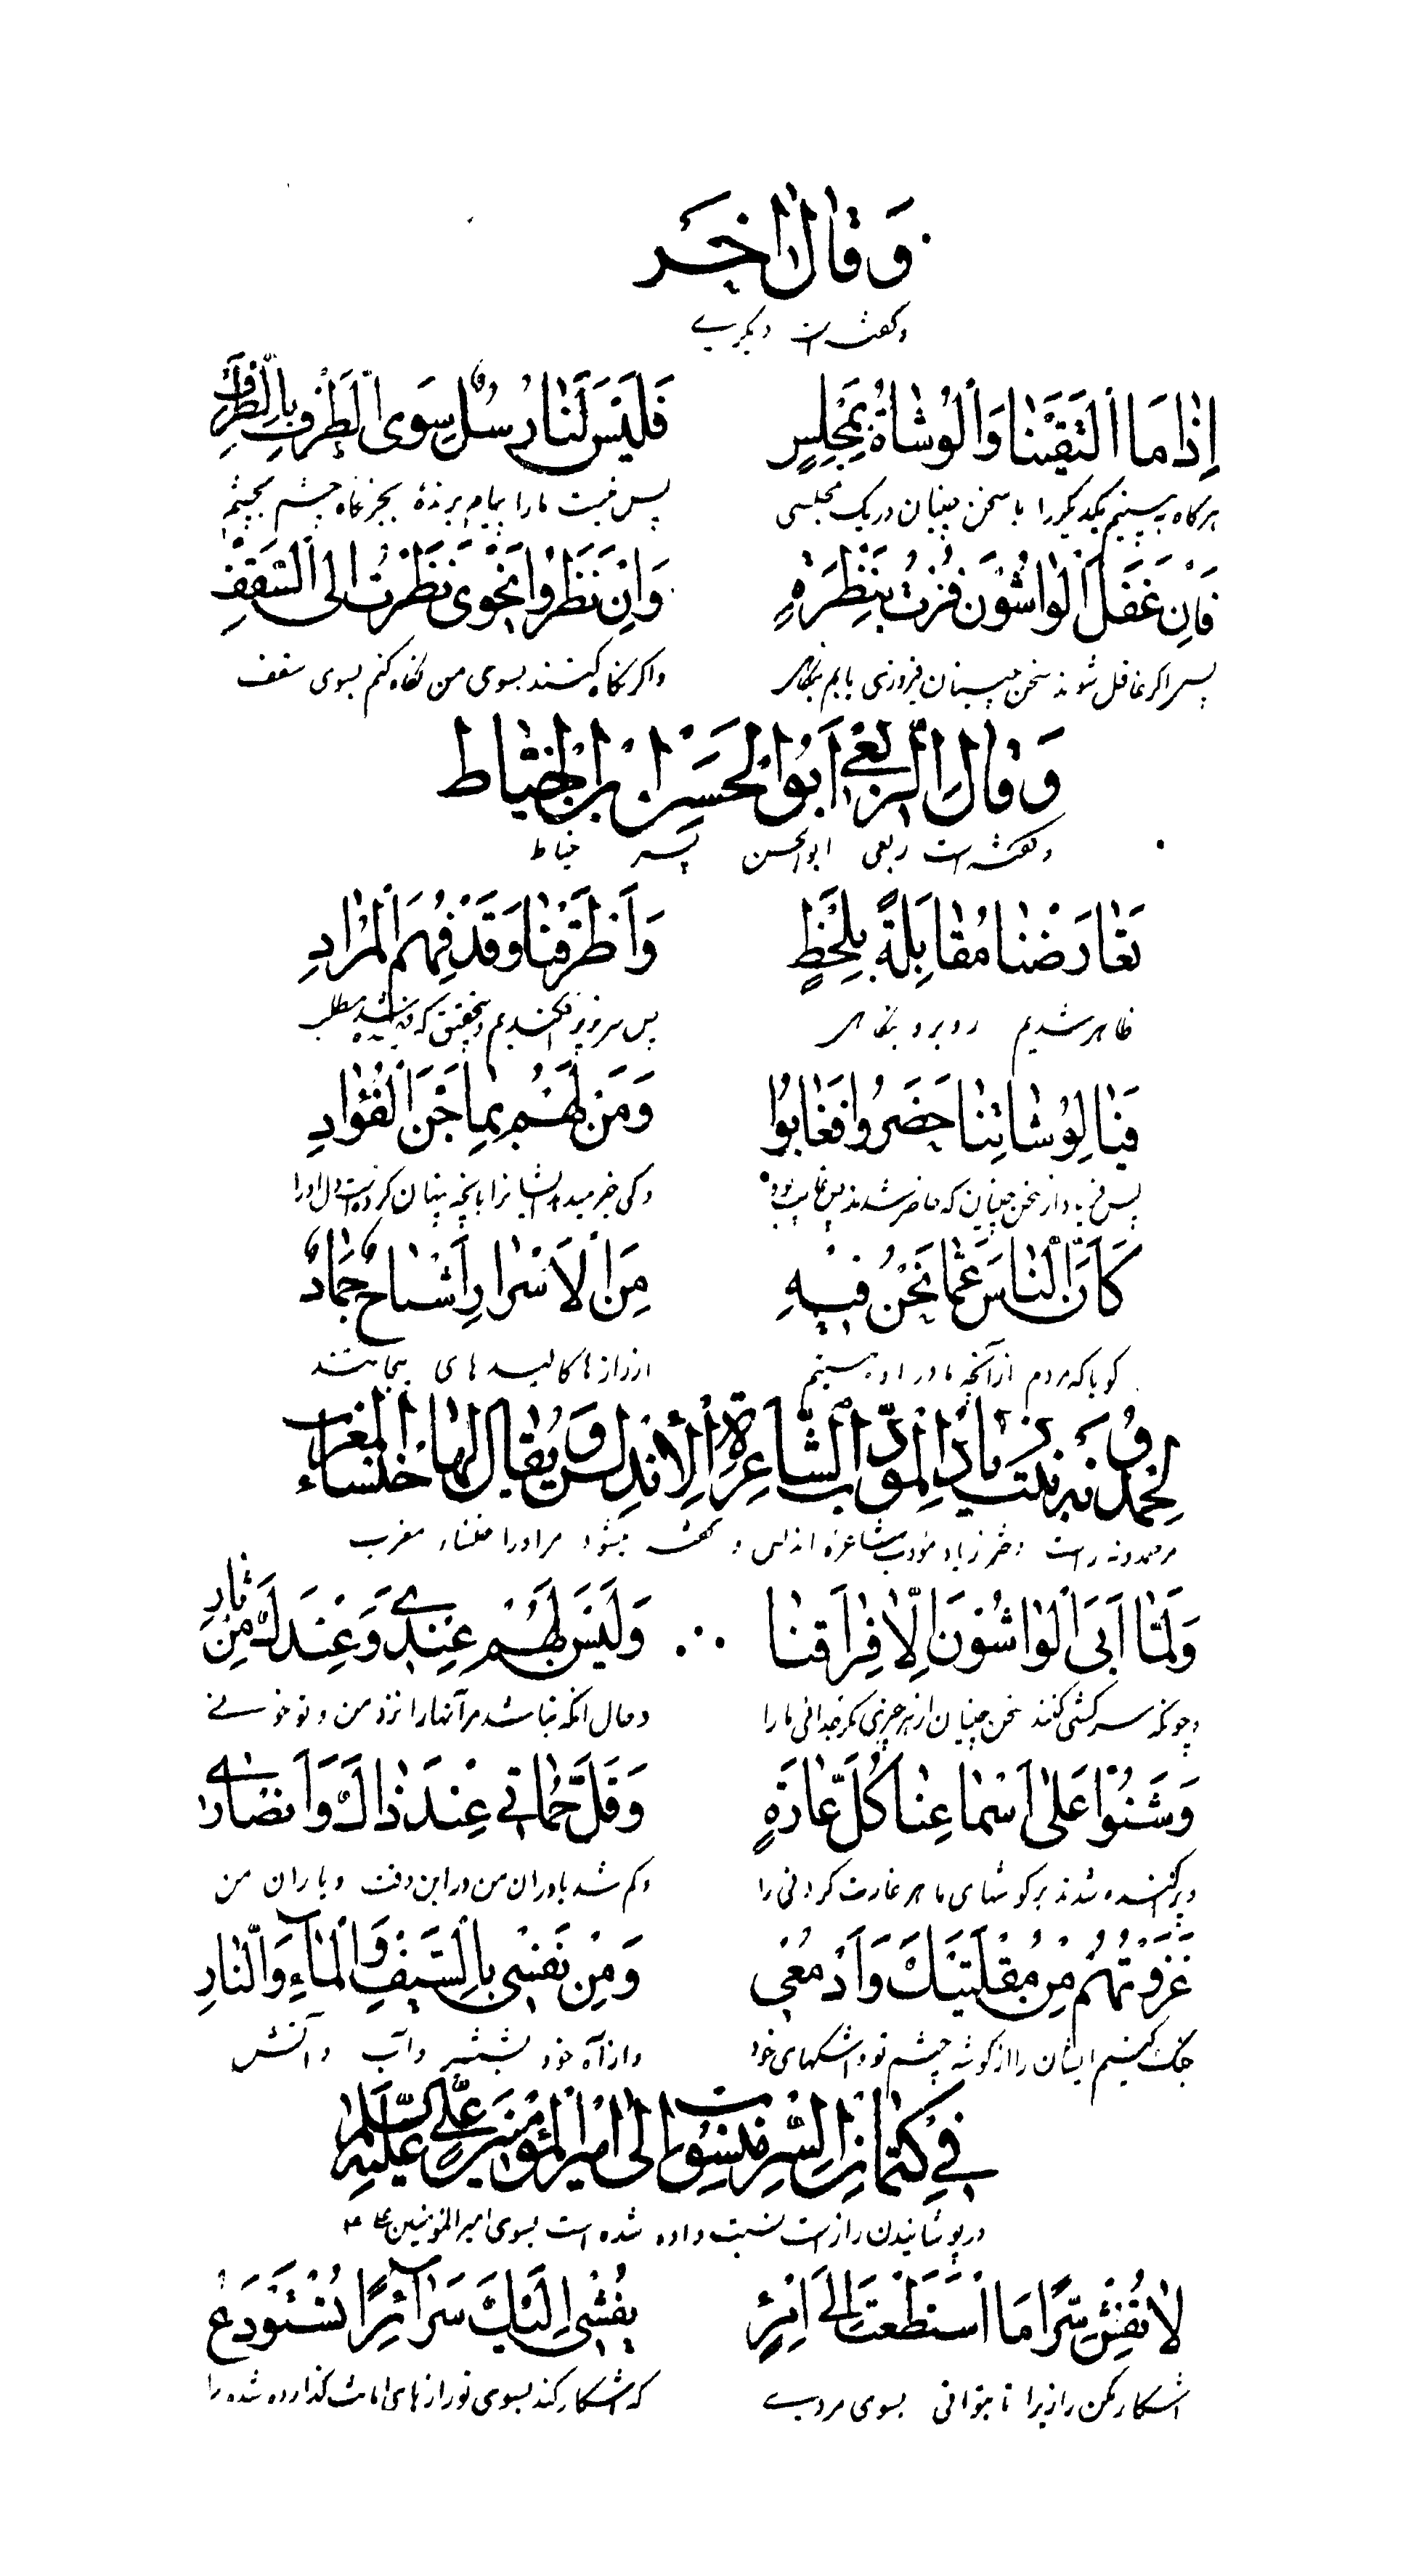 وَقَالَ اٰخَر
و گفته است دیگری
اِذٰا مَا الْتَقَیْنٰا وَالْوُشٰاةُ بِمَجْلِسٍ فَلَیْسَ لَنٰا رُسُلٌ سِوَی الطَّرْفِ بِالطَّرْفِ
هرگاه به بینیم یکدیگر را با سخن چینان در یک مجلسی پس نیست ما را پیام برندهٔ بجز نگاه چشم بچشم
فَاِنْ غَفَلَ الْوٰاشُونَ فُزْتُ بِنَظْرَةٍ وَاِنْ نَظَرُوا نَحْوی نَظَرْتُ اِلَی السَّقْفِ
پس اگر غافل شوند سخن چینان فیروزی یابم بنگاهی و اگر نگاه کنند بسوی من نگاه کنم بسوی سقف
وَقَالَ الرَّبَعِیُّ اَبُوالْحَسَنِ ابْنُ الْخَیّٰاط
و گفته است ربعی ابوالحسن پسر خیاط
تَعٰارَضْنٰا مُقٰابَلَةً بِلَحْظٍ وَاَطْرَقْنٰا وَقَدْ فُهِمَ الْمُرٰادِ
ظاهر شدیم روبرو بنگاهی پس سر و زیر افکندیم و بتحقیق که فهمیده شد مطلب
فَیٰا لِوُشٰاتِنٰا حَضَرُوا فَغٰابُوا وَمَنْ لَهُمْ بِمٰا جَنَّ الْفُؤٰادِ
پس فریاد از سخن چینان که حاضر شدند پس غایب بودند و کی خبر میدهد ایشانرا بآنچه پنهان کرده است دل او را
کَاَنَّ النّٰاسَ عَمّٰا نَحْنُ فیهِ مِنَ الْاَسْرٰارِ اَشْبٰاحٌ جَمٰادٌ
گویا که مردم از آنچه ما در او هستیم از رازها کالبدهای بیجانند
لِحَمْدُونَةَ بِنْتِ زِیٰادِ الْمُؤَدِّبِ الشّٰاعِرَةِ الْاَنْدَلُسِ وَیُقٰالُ لَهٰا خَنْسٰاءُ الْمَغْرِبِ
مر حمدونه راست دختر زیاد مؤدب شاعره اندلس و گفته میشود مر او را خنساء مغرب
وَلَمّٰا اَبَی الْوٰاشُونَ اِلّٰا فِرٰاقَنٰا وَلَیْسَ لَهُمْ عِنْدی وَعِنْدَكَ مِنْ ثٰارِ
و چونکه سرکشی کنند سخن چینان از هر چیزی مگر جدائی ما را و حال آنکه نباشد مر آنها را نزد من و تو خونی
وَشَنُّوا عَلٰی اَسْمٰاعِنٰا کُلَّ غٰارَةٍ وَقَلَّ حُمٰاتی عِنْدَ ذٰاكَ وَاَنْصٰاری
و پرکننده شدند بر گوشهای ما هر غارت کردنی را و کم شد یاوران من در این وقت و یاران من
غَزَوْتُهُمْ مِنْ مُقْلَتَیْكَ وَاَدْمُعی وَمِنْ نَفَسی بِالسَّیْفِ وَالْمٰاءِ وَالنّٰارِ
جنگ کنیم ایشان را از گوشه چشم تو و اشکهای خود و از آه خود بشمشیر و آب و آتش
فی کِتْمٰانِ السِّرِّ مَنْسُوبٌ اِلٰی اَمیرِالْمُؤْمِنینَ عَلِیٍّ عَلَیْهِ السَّلٰام
در پوشانیدن راز است نسبت داده شده است بسوی امیرالمؤمنین ع
لٰا تُفْشِ سِرًّا مَا اسْتَطَعْتَ اِلَی امْرِئٍ یُفْشی اِلَیْكَ سَرٰائِرًا یُسْتَوْدَعُ
آشکار مکن راز را تا بتوانی بسوی مردی که آشکار کند بسوی تو رازهای امانت گذارده شده را